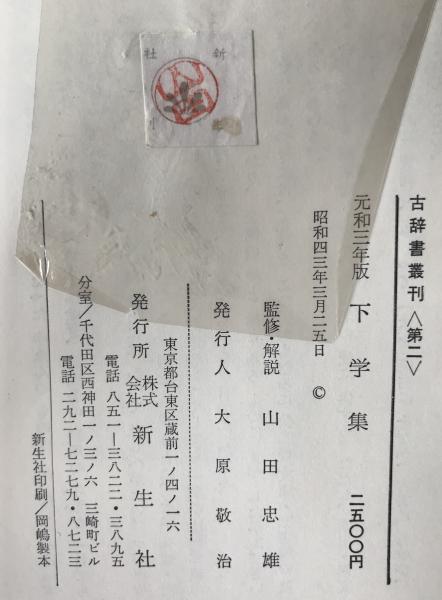 新
社
古辞書叢刊〈第二〉
元和三年版 下学集 二五〇〇円
昭和四三年三月二五日 ©
監修・解説 山田忠雄
発行人 大原敬治
東京都台東区蔵前一ノ四ノ一六
発行所 株式会社 新生社
電話 八五一―三八二二・三八九五
分室／千代田区西神田一ノ三ノ六 三崎町ビル
電話 二九二―七二七九・八七二三
新生社印刷／岡嶋製本